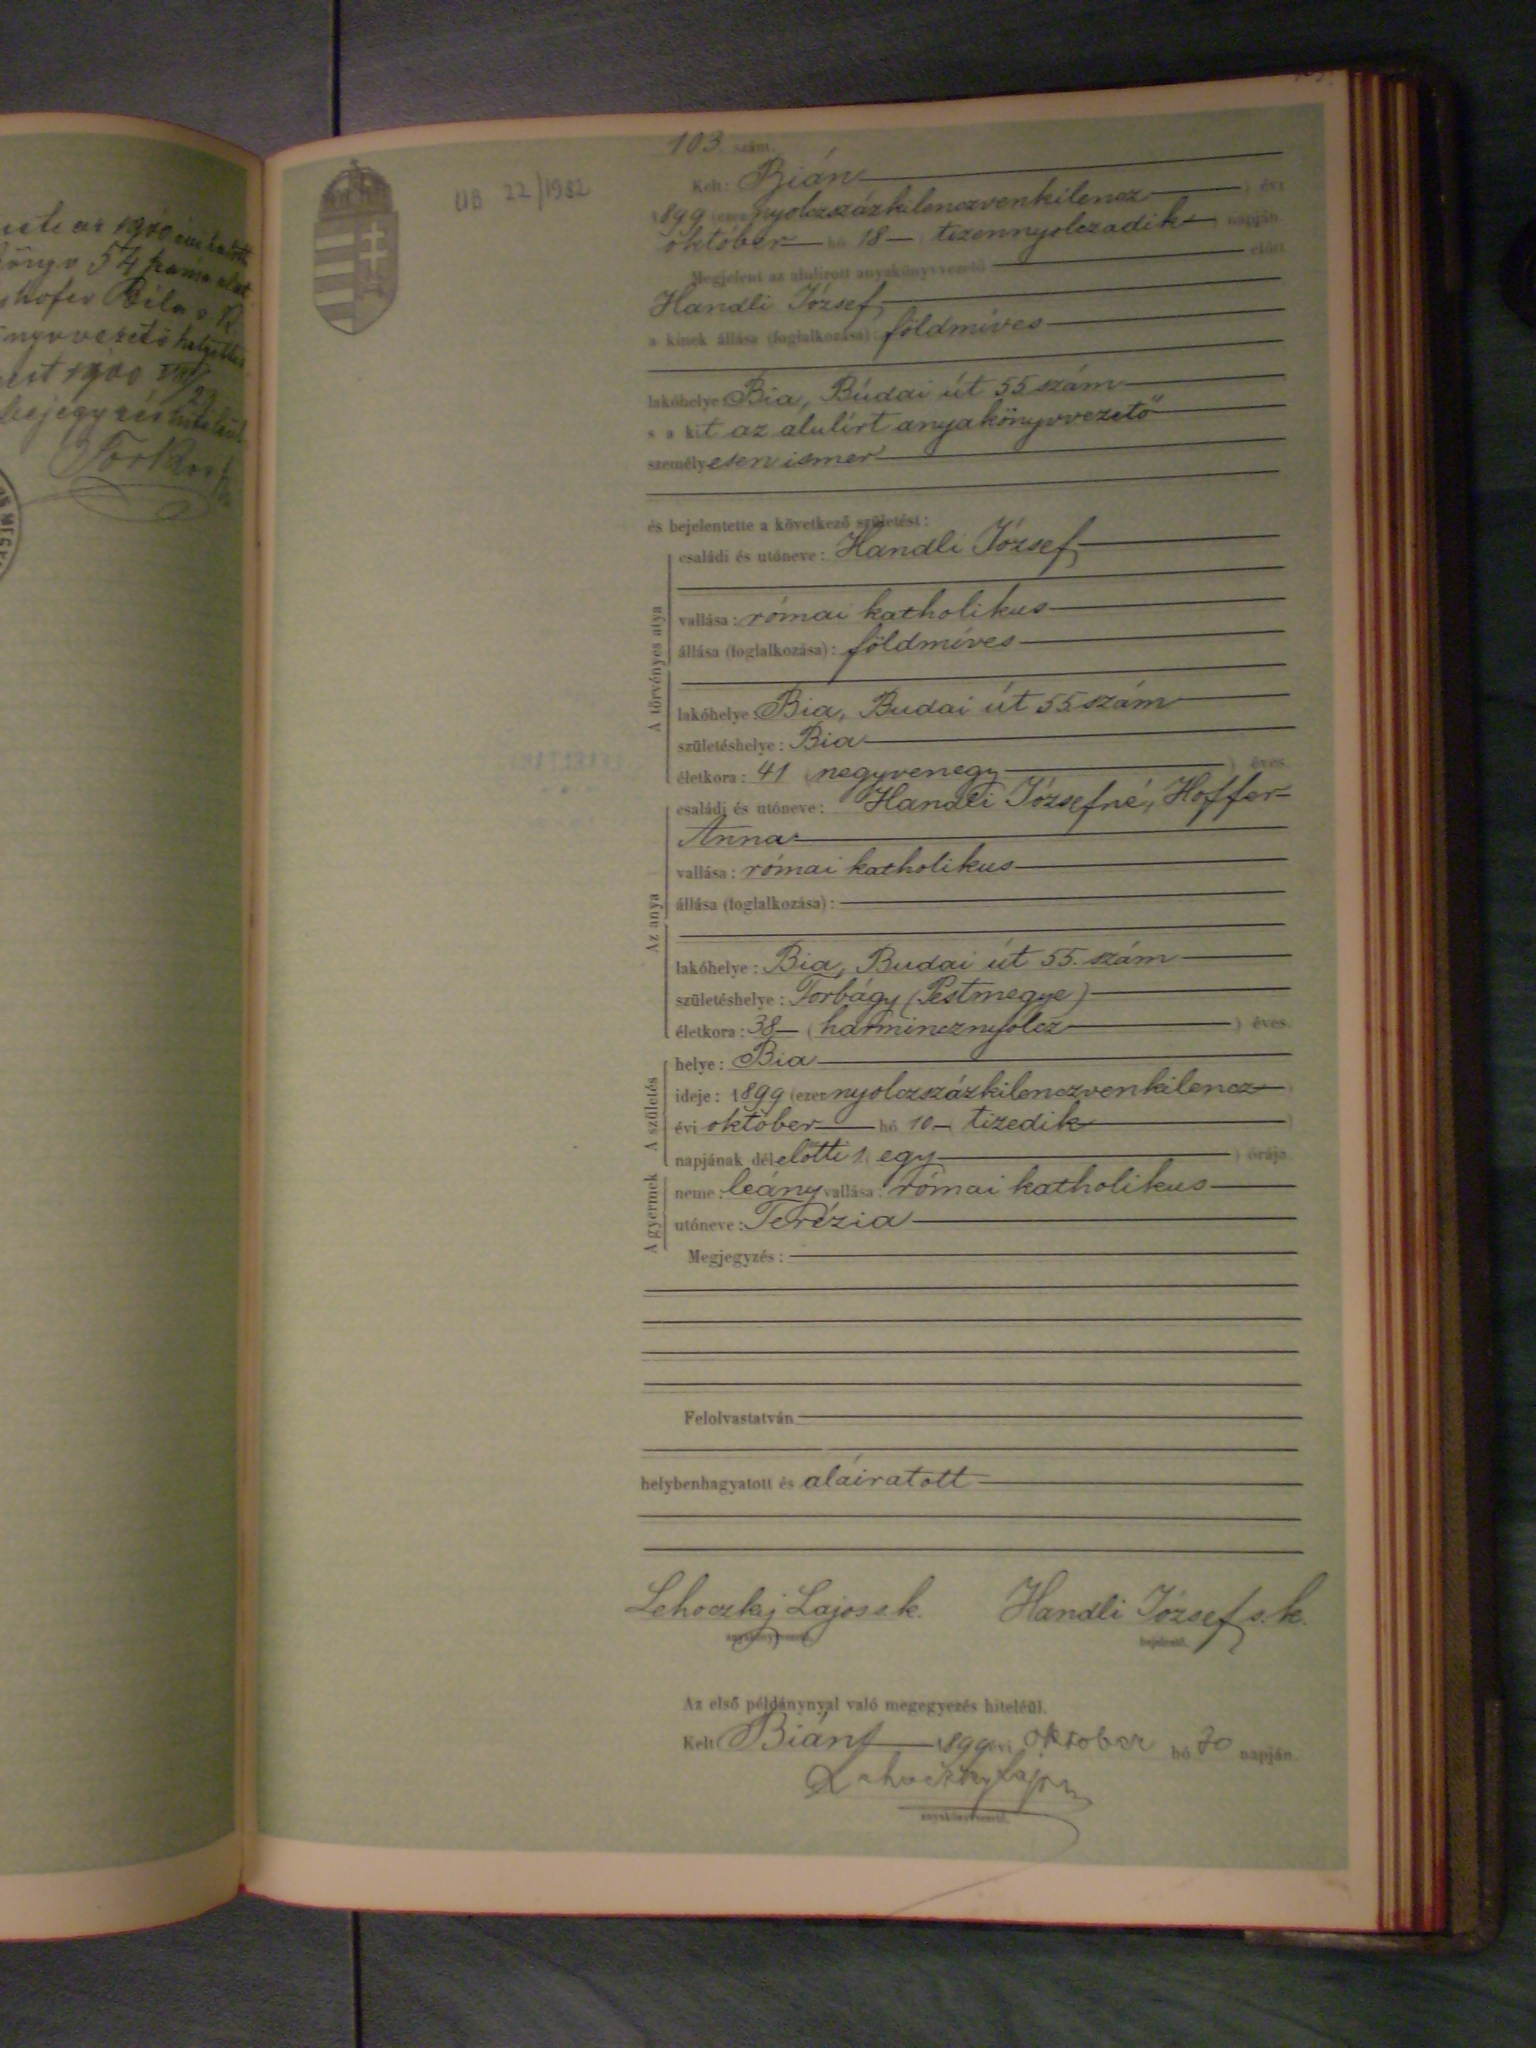 1900 évi halotti
54 szám alatt
Béla s. k.
helyettes
1900 VIII/23
bejegyzés hiteléül
103. szám.
ÜB 22/1982
Kelt: Bián
1899 (ezernyolczszázkilenczvenkilencz) évi
október hó 18 (tizennyolczadik) napján.
Megjelent az alulirott anyakönyvvezető előtt
Handli József,
a kinek állása (foglalkozása): földmíves
lakóhelye Bia, Búdai út 55 szám
s a kit az alulírt anyakönyvvezető
személyesen ismer
és bejelentette a következő születést:
A törvényes atya
családi és utóneve: Handli József
vallása: római katholikus
állása (foglalkozása): földmíves
lakóhelye: Bia, Budai út 55 szám
születéshelye: Bia
életkora: 41 (negyvenegy) éves.
Az anya
családi és utóneve: Handli Józsefné, Hoffer
Anna
vallása: római katholikus
állása (foglalkozása):
lakóhelye: Bia, Budai út 55. szám
születéshelye: Torbágy (Pestmegye)
életkora: 38 (harmincznyolcz) éves.
A születés
helye: Bia
ideje: 1899 (ezernyolczszázkilenczvenkilencz)
évi október hó 10 tizedik
napjának délelőtti 1 (egy) órája.
A gyermek
neme: leány vallása: római katholikus
utóneve: Terézia
Megjegyzés:
Felolvastatván
helybenhagyatott és aláiratott
Lehoczky Lajos s.k. Handli József s.k.
anyakönyvvezető. bejelentő.
Az első példánynyal való megegyezés hiteléül.
Kelt Bián 1899 évi oktober hó 30 napján.
Lehoczky Lajos
anyakönyvvezető.